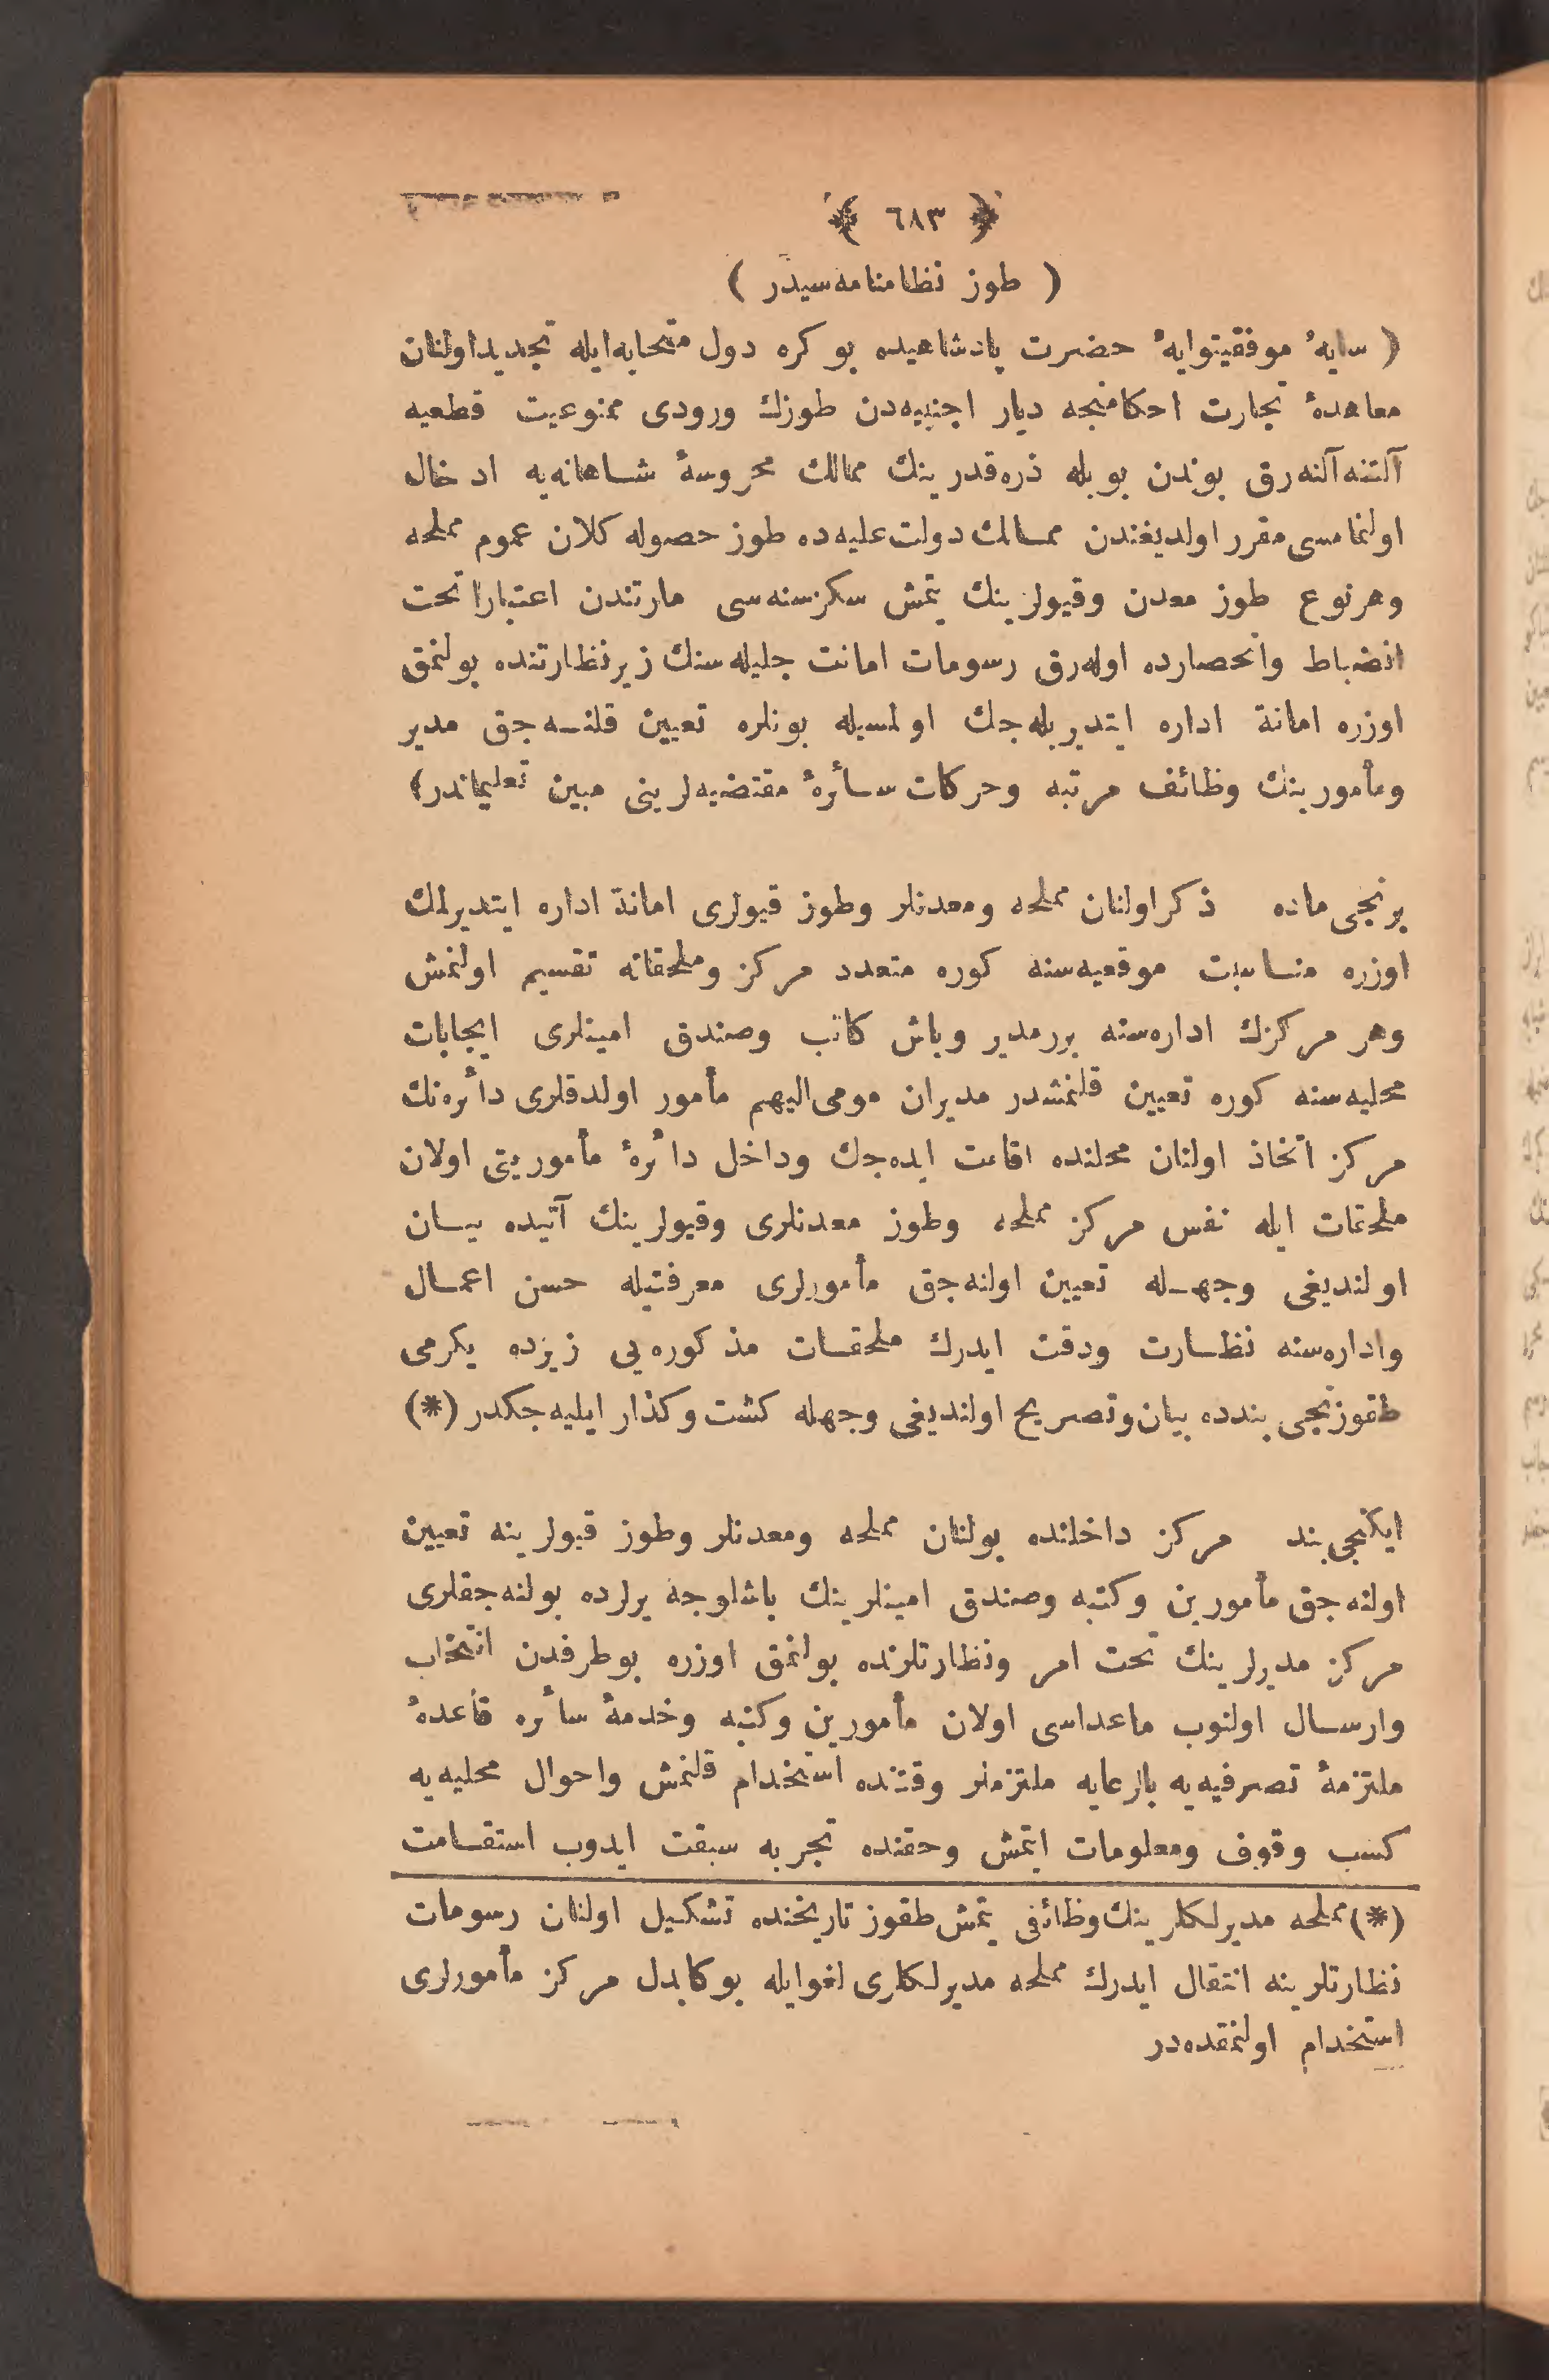 ﴿ ٦٨٣ ﴾
( طوز نظامنامه‌سیدر )
( سایهٔ موفقیتوایهٔ حضرت پادشاهیده بو کره دول متحابه ایله تجدید اولنان
معاهدهٔ تجارت احکامنجه دیار اجنبیه‌دن طوزك ورودی ممنوعیت قطعیه
آلتنه آلنه‌رق بوندن بویله ذره قدرینك ممالك محروسهٔ شاهانه‌یه ادخال
اولنمامسی مقرر اولدیغندن ممالك دولت علیه‌ده طوز حصوله کلان عموم مملحه
وهر نوع طوز معدن وقیولرینك یتمش سکز سنه‌سی مارتندن اعتباراً تحت
انضباط وانحصارده اوله‌رق رسومات امانت جلیله‌سنك زیر نظارتنده بولنمق
اوزره امانة اداره ایتدیریله‌جك اولمسیله بونلره تعیین قلنه‌جق مدیر
ومأمورینك وظائف مرتبه وحرکات سائرهٔ مقتضیه‌لرینی مبین تعلیماتدر )
برنجی ماده ذکر اولنان مملحه ومعدنلر وطوز قیولری امانة اداره ایتدیرلمك
اوزره مناسبت موقعیه‌سنه کوره متعدد مرکز وملحقاته تقسیم اولنمش
وهر مرکزك اداره‌سنه برر مدیر وباش کاتب وصندق امینلری ایجابات
محلیه‌سنه کوره تعیین قلنمشدر مدیران مومی الیهم مأمور اولدقلری دائره‌نك
مرکز اتخاذ اولنان محلنده اقامت ایده‌جك وداخل دائرهٔ مأموریتی اولان
ملحقات ایله نفس مرکز مملحه وطوز معدنلری وقیولرینك آتیده بیان
اولندیغی وجهله تعیین اولنه‌جق مأمورلری معرفتیله حسن اعمال
واداره‌سنه نظارت ودقت ایدرك ملحقات مذکوره‌یی زیرده یکرمی
طقوزنجی بندده بیان وتصریح اولندیغی وجهله کشت وکذار ایلیه‌جکدر (*)
ایکنجی بند مرکز داخلنده بولنان مملحه ومعدنلر وطوز قیولرینه تعیین
اولنه‌جق مأمورین وکتبه وصندق امینلرینك باشلوجه یرلرده بولنه‌جقلری
مرکز مدیرلرینك تحت امر ونظارتلرنده بولنمق اوزره بو طرفدن انتخاب
وارسال اولنوب ماعداسی اولان مأمورین وکتبه وخدمهٔ سائره قاعدهٔ
ملتزمهٔ تصرفیه‌یه بالرعایه ملتزملر وقتنده استخدام قلنمش واحوال محلیه‌یه
کسب وقوف ومعلومات ایتمش وحقنده تجربه سبقت ایدوب استقامت
(*) مملحه مدیرلکلرینك وظائفی یتمش طقوز تاریخنده تشکیل اولنان رسومات
نظارتلرینه انتقال ایدرك مملحه مدیرلکلری لغو ایله بوکا بدل مرکز مأمورلری
استخدام اولنمقده‌در